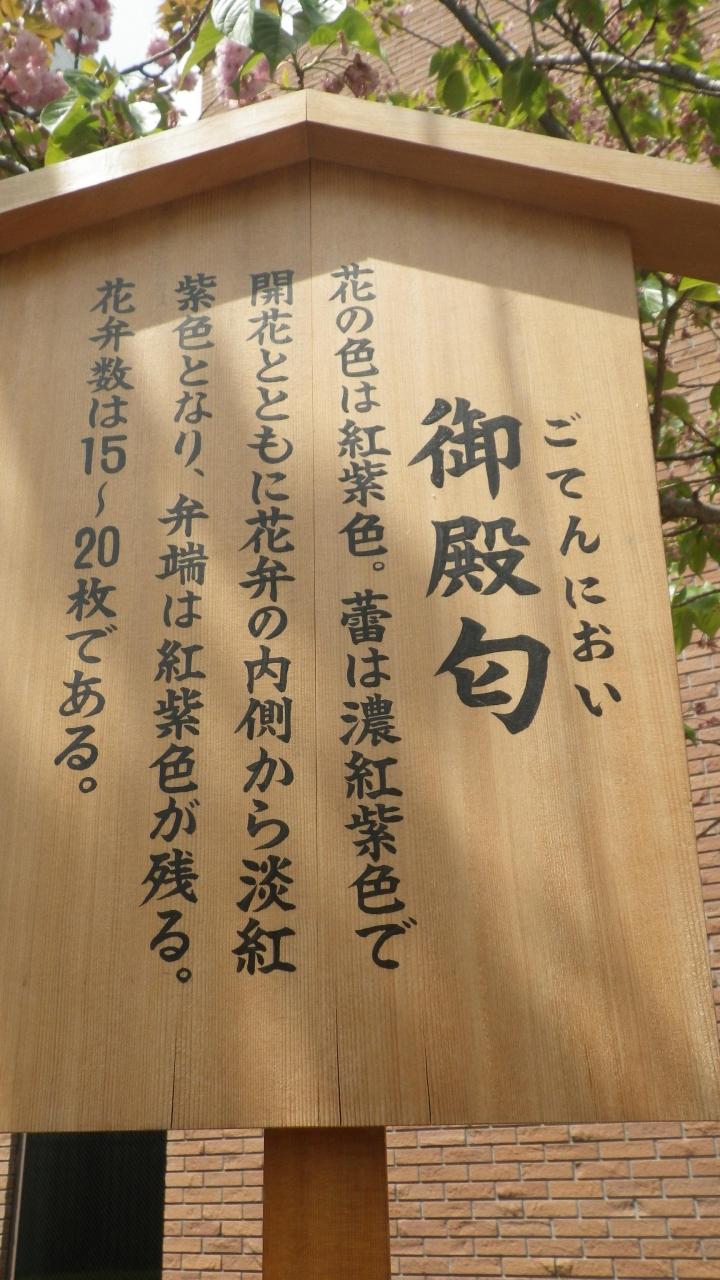 ごてんにおい
御殿匂
花の色は紅紫色。蕾は濃紅紫色で
開花とともに花弁の内側から淡紅
紫色となり、弁端は紅紫色が残る。
花弁数は15~20枚である。